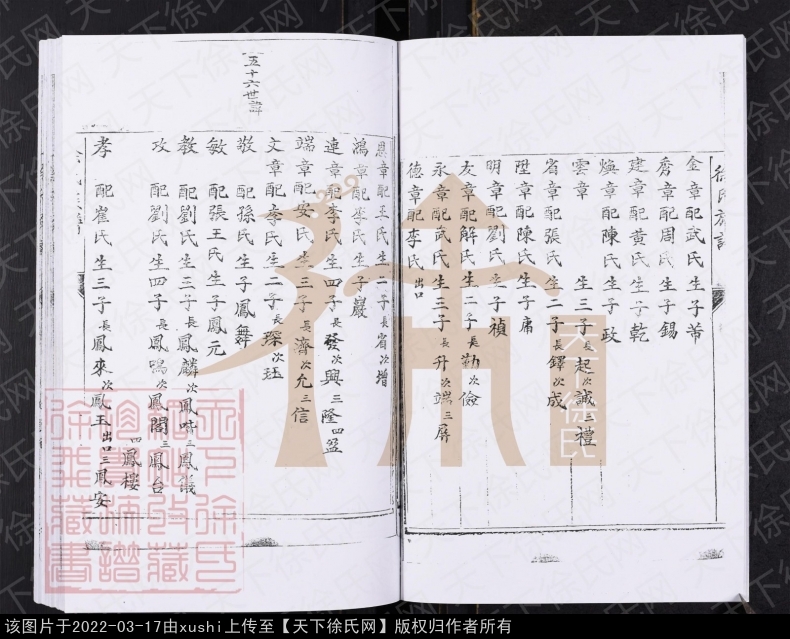 徐氏族譜
金章配武氏生子芾
秀章配周氏生子錫
建章配黃氏生子乾
煥章配陳氏生子政
雲章 生三子長起次誠三禮
省章配張氏生二子長鐸次成
陞章配陳氏生子庸
明章配劉氏生子禎
友章配解氏生二子長勤次儉
永章配武氏生三子長升次端三屏
德章配李氏出口
恩章配王氏生二子長省次增
鴻章配李氏生子巖
連章配李氏生四子長發次興三隆四盈
端章配安氏生三子長濟次允三信
文章配李氏生二子長琛次珏
五十六世諱
敬 配孫氏生子鳳舞
敏 配張王氏生子鳳元
教 配劉氏生三子長鳳麟次鳳喈三鳳儀
攻 配劉氏生四子長鳳鳴次鳳閣三鳳台四鳳樓
孝 配崔氏生三子長鳳來次鳳玉出口三鳳安
天下徐氏
天下徐氏网
该图片于2022-03-17由xushi上传至【天下徐氏网】版权归作者所有